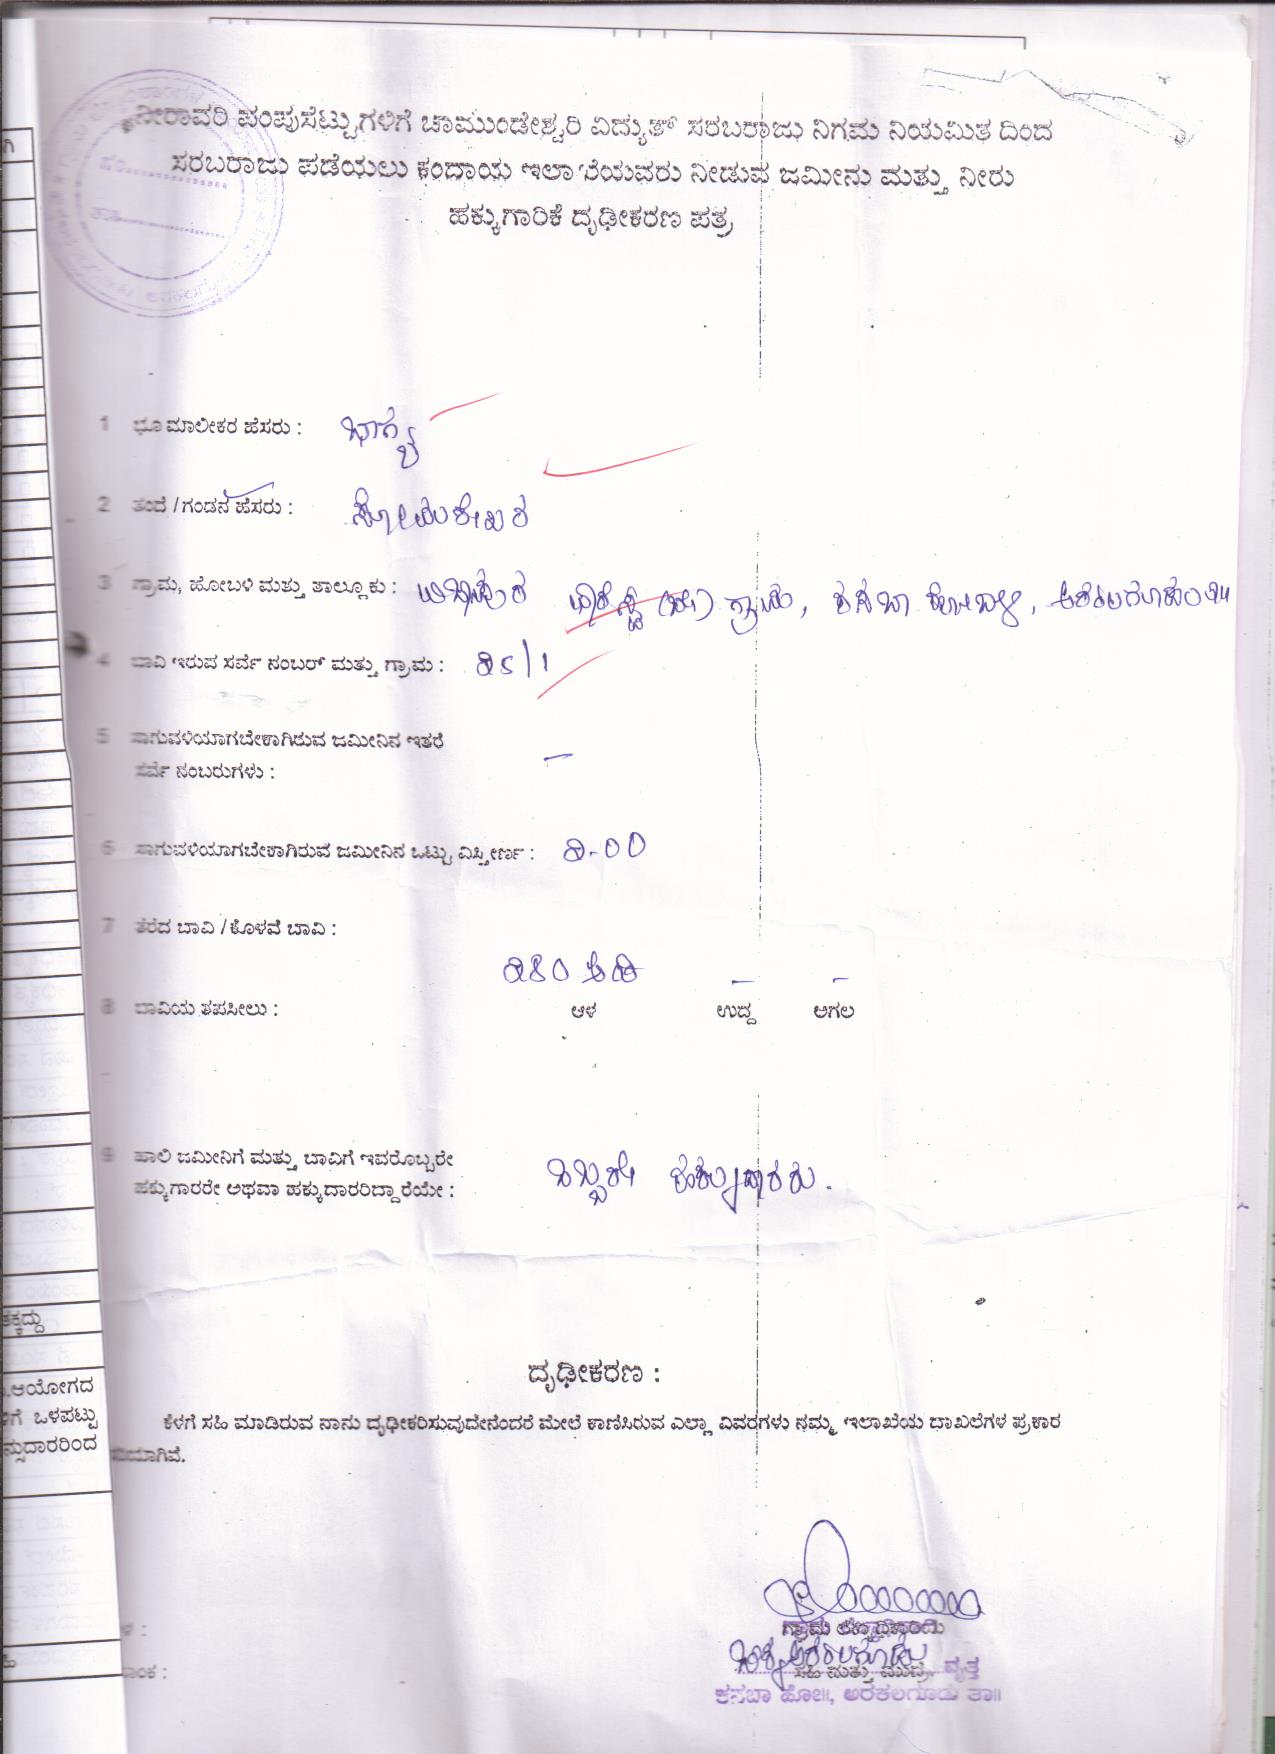 ನೀರಾವರಿ ಪಂಪುಸೆಟ್ಟುಗಳಿಗೆ ಚಾಮುಂಡೇಶ್ವರಿ ವಿದ್ಯುತ್ ಸರಬರಾಜು ನಿಗಮ ನಿಯಮಿತ ದಿಂದ
ಸರಬರಾಜು ಪಡೆಯಲು ಕಂದಾಯ ಇಲಾಖೆಯವರು ನೀಡುವ ಜಮೀನು ಮತ್ತು ನೀರು
ಹಕ್ಕುಗಾರಿಕೆ ದೃಢೀಕರಣ ಪತ್ರ
1 ಭೂಮಾಲೀಕರ ಹೆಸರು : ಭಾಗ್ಯ
2 ತಂದೆ / ಗಂಡನ ಹೆಸರು : ಸೋಮಶೇಖರ
3 ಗ್ರಾಮ, ಹೋಬಳಿ ಮತ್ತು ತಾಲ್ಲೂಕು : ಗ್ರಾಮ, ಕಸಬಾ ಹೋಬಳಿ, ಅರಕಲಗೂಡು
4 ಬಾವಿ ಇರುವ ಸರ್ವೆ ನಂಬರ್ ಮತ್ತು ಗ್ರಾಮ : ೨೮/೧
5 ಸಾಗುವಳಿಯಾಗಬೇಕಾಗಿರುವ ಜಮೀನಿನ ಇತರೆ —
ಸರ್ವೆ ನಂಬರುಗಳು :
6 ಸಾಗುವಳಿಯಾಗಬೇಕಾಗಿರುವ ಜಮೀನಿನ ಒಟ್ಟು ವಿಸ್ತೀರ್ಣ : ೨-೦೦
7 ತೆರೆದ ಬಾವಿ / ಕೊಳವೆ ಬಾವಿ :
ಅಡಿ — —
8 ಬಾವಿಯ ತಪಸೀಲು : ಆಳ ಉದ್ದ ಅಗಲ
9 ಹಾಲಿ ಜಮೀನಿಗೆ ಮತ್ತು ಬಾವಿಗೆ ಇವರೊಬ್ಬರೇ
ಹಕ್ಕುಗಾರರೇ ಅಥವಾ ಹಕ್ಕುದಾರರಿದ್ದಾರೆಯೇ : ಒಬ್ಬರೇ ಹಕ್ಕುದಾರರು.
ದೃಢೀಕರಣ :
ಕೆಳಗೆ ಸಹಿ ಮಾಡಿರುವ ನಾನು ದೃಢೀಕರಿಸುವುದೇನೆಂದರೆ ಮೇಲೆ ಕಾಣಿಸಿರುವ ಎಲ್ಲಾ ವಿವರಗಳು ನಮ್ಮ ಇಲಾಖೆಯ ದಾಖಲೆಗಳ ಪ್ರಕಾರ
ಸರಿಯಾಗಿವೆ.
ಗ್ರಾಮ ಲೆಕ್ಕಾಧಿಕಾರಿ
ಅರಕಲಗೂಡು
ಸಹಿ ಮತ್ತು ಮುದ್ರೆ ವೃತ್ತ
ಕಸಬಾ ಹೋ॥, ಅರಕಲಗೂಡು ತಾ॥
ತಕ್ಕದ್ದು
.ಆಯೋಗದ
ಗೆ ಒಳಪಟ್ಟು